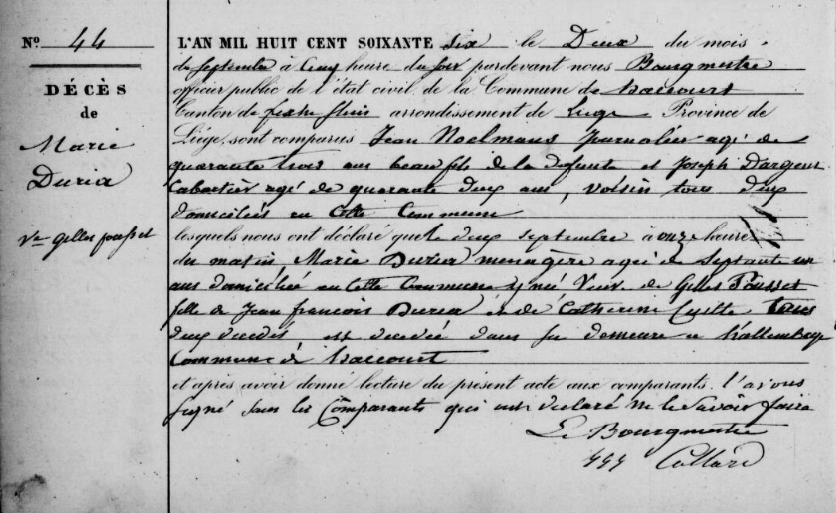 N° 44
DÉCÈS
de
Marie
Duria
Ve Gilles pousset
L'AN MIL HUIT CENT SOIXANTE six le Deux du mois
de septembre à Cinq heure du soir pardevant nous Bourgmestre
officier public de l'état civil de la Commune de haccourt
Canton de fexhe slins arrondissement de Liége Province de
Liége, sont comparus Jean Noelmans journalier agé de
quarante trois ans beau fils de la defunte et Joseph Dargent
Cabartier agé de quarante deux ans, voisin tous deux
domiciliés en Cette Commune
lesquels nous ont déclaré que le deux septembre à onze heure
du matin, Marie Duria menagère agée de septante un
ans domiciliée en Cette Commune y née Veuve de Gilles Pousset
fille de Jean françois Duria et de Catherine tous
deux décédés est decedée dans sa demeure a hallembaye
Commune de haccourt
et après avoir donné lecture du présent acte aux comparants, l'avons
signé sans les Comparants qui ont declaré ne le savoir faire
Le Bourgmestre
Collard